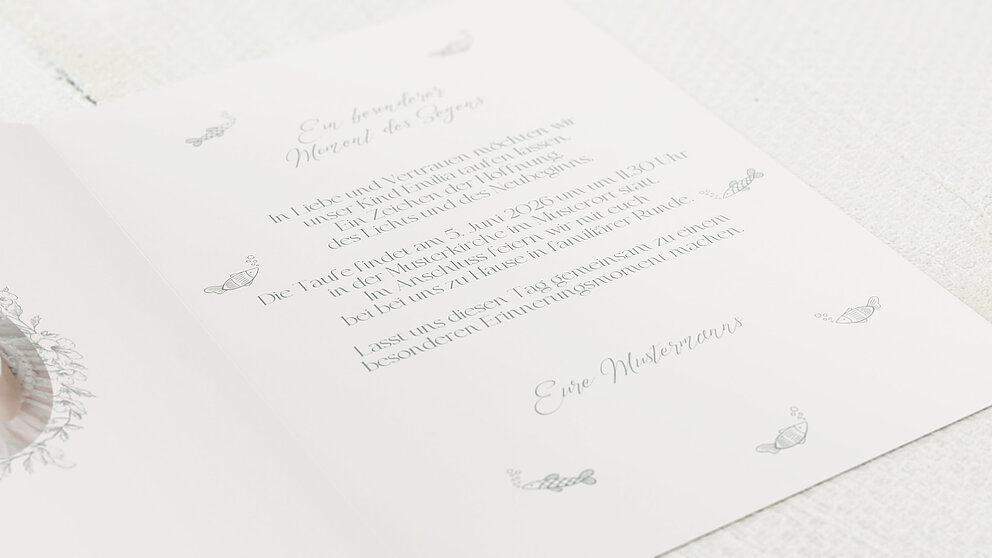 Ein besonderer
Moment des Segens
In Liebe und Vertrauen möchten wir
unser Kind Emilia taufen lassen.
Ein Zeichen der Hoffnung,
des Lichts und des Neubeginns.
Die Taufe findet am 5. Juni 2026 um um 11.30 Uhr
in der Musterkirche im Musterort statt.
Im Anschluss feiern wir mit euch
bei bei uns zu Hause in familiärer Runde.
Lasst uns diesen Tag gemeinsam zu einem
besonderen Erinnerungsmoment machen.
Eure Mustermanns